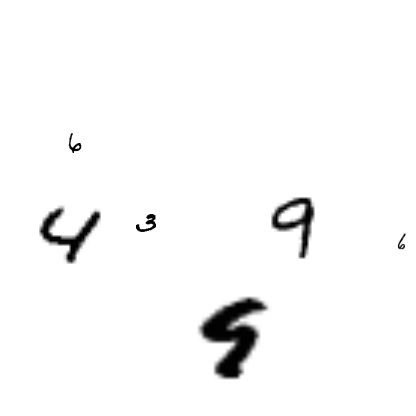 6
4 3 9 6